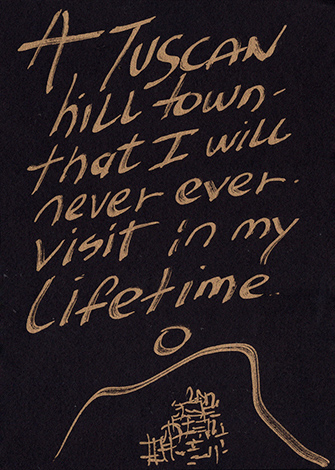 A TUSCAN
hill town-
that I will
never ever.
visit in my
Lifetime